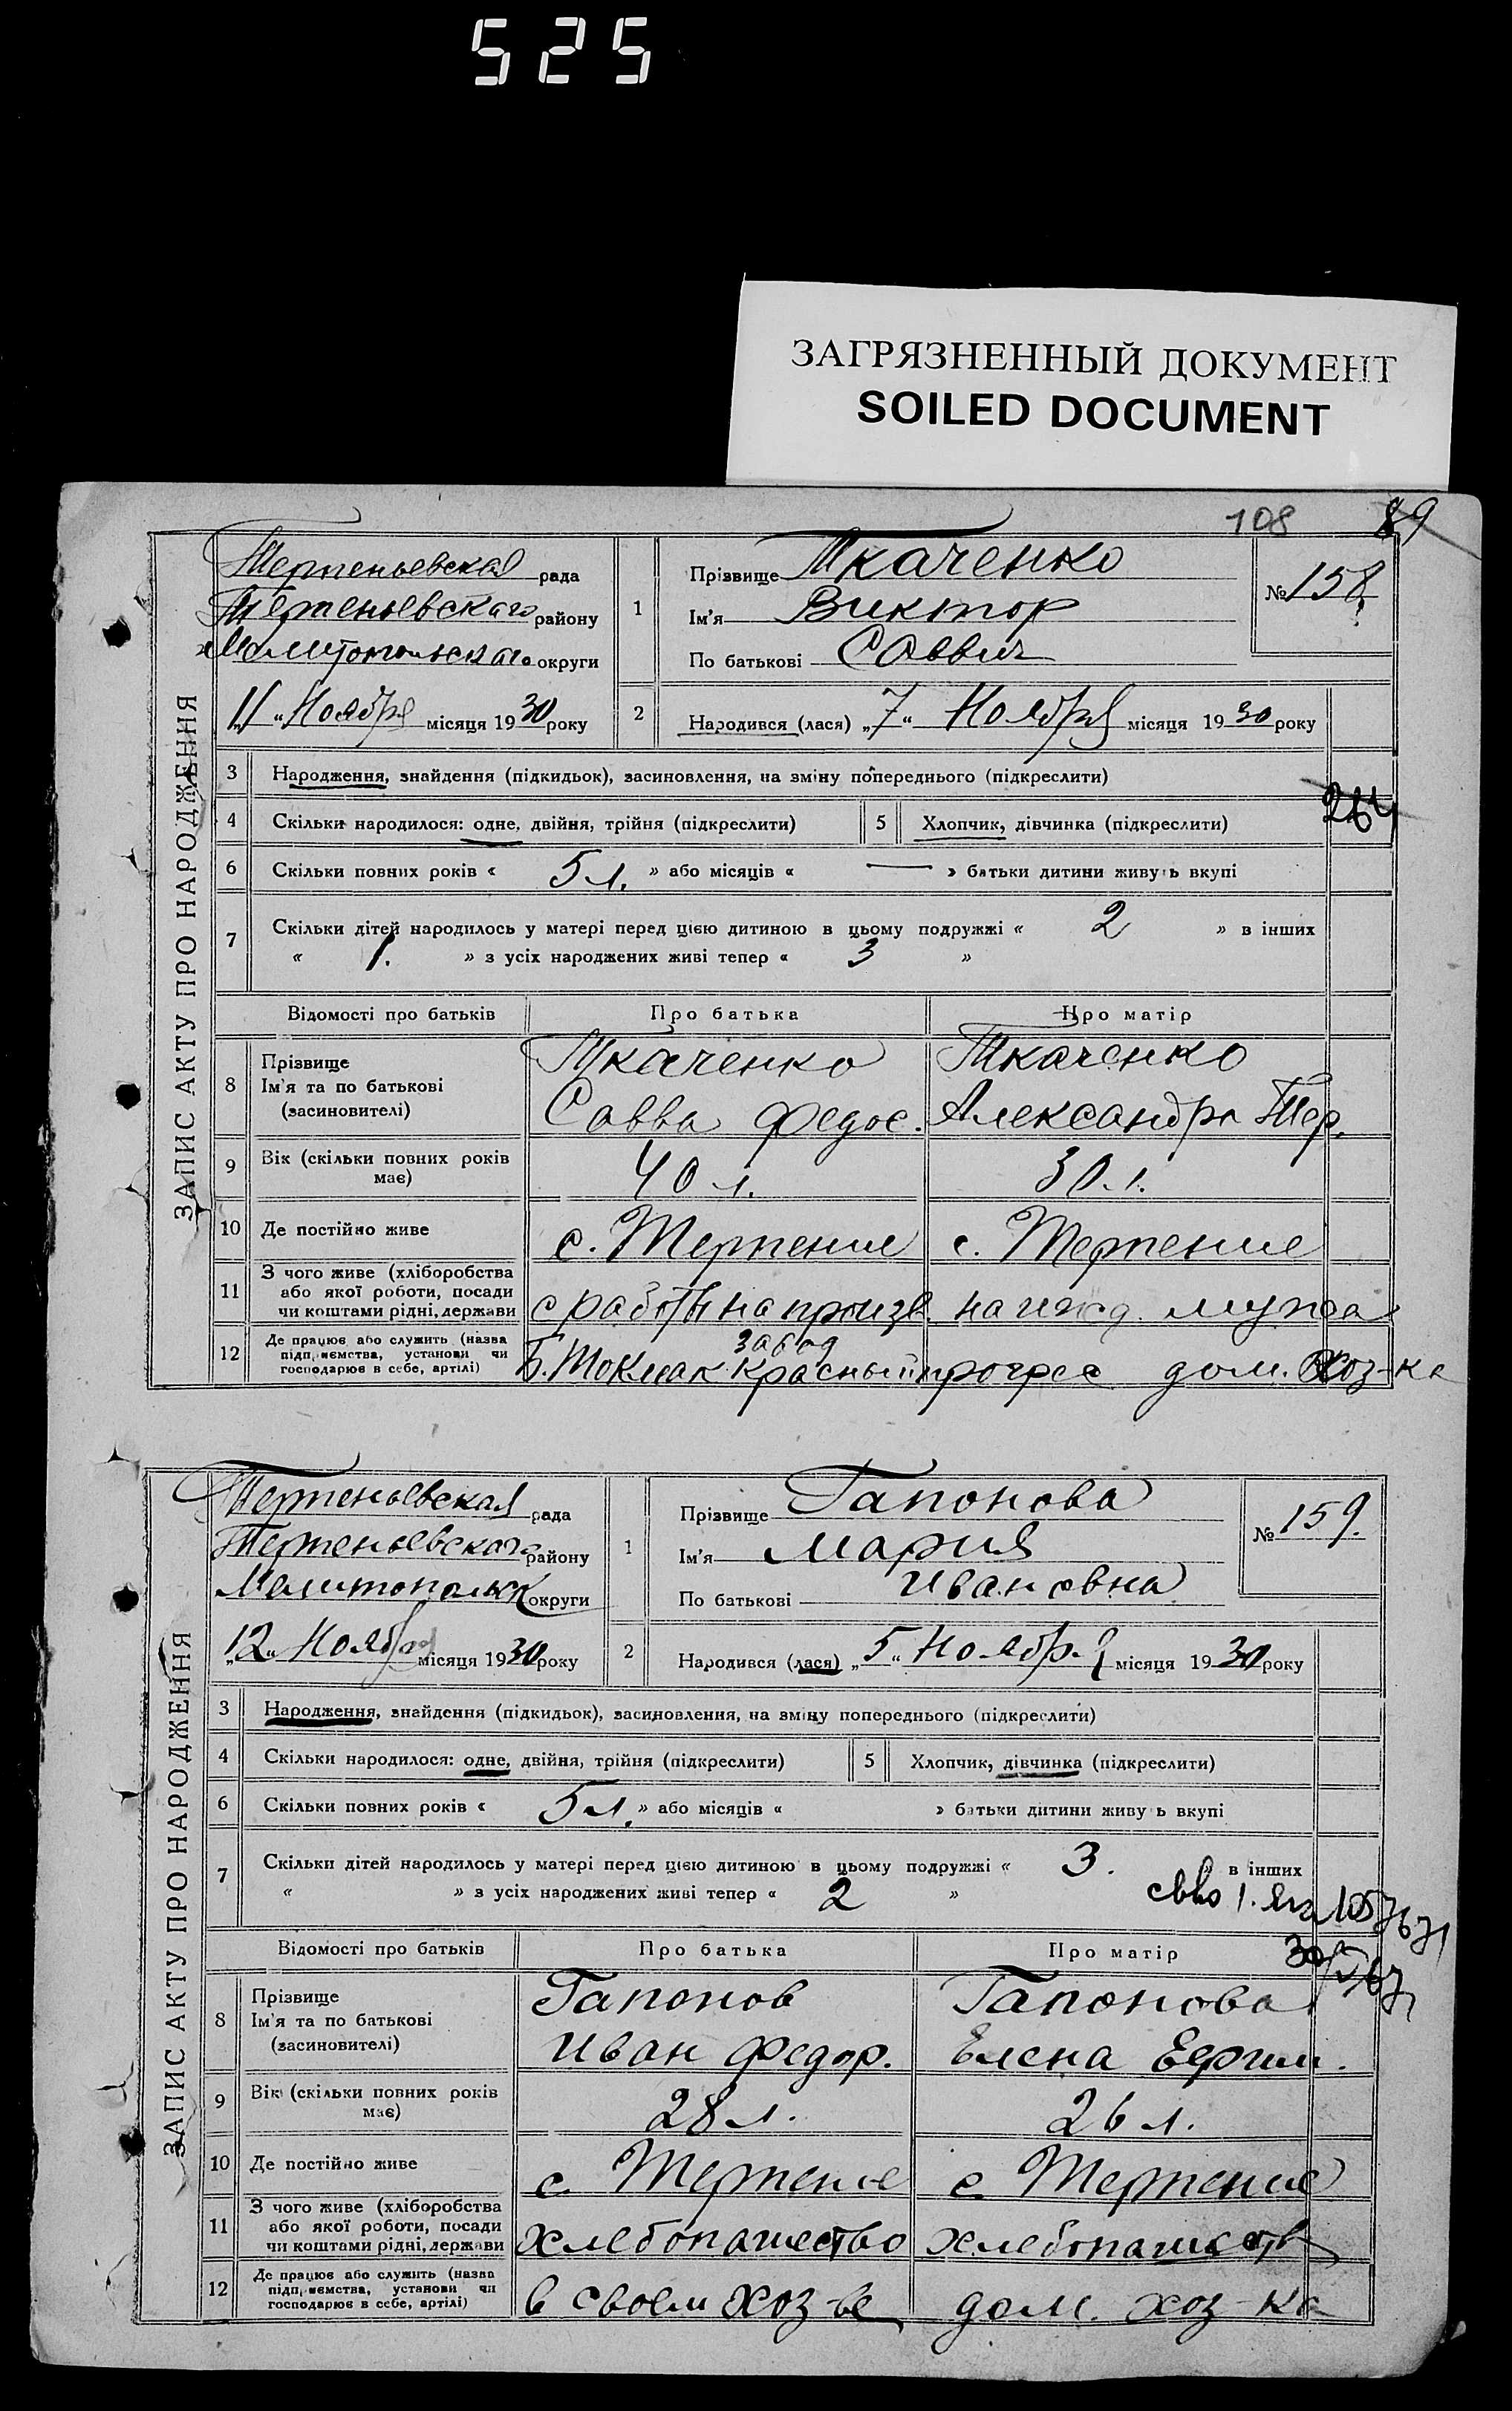 525
ЗАГРЯЗНЕННЫЙ ДОКУМЕНТ
SOILED DOCUMENT
108 89
ЗАПИС АКТУ ПРО НАРОДЖЕННЯ
Терпеньевская рада
Терпеньевского району
Мелитопольского округи
"11" Ноября місяця 1930 року
1 Прізвище Ткаченко
Ім'я Виктор
По батькові Саввич
№ 158
2 Народився (лася) „7" Ноября місяця 1930 року
3 Народження, знайдення (підкидьок), засиновлення, на зміну попереднього (підкреслити)
4 Скільки народилося: одне, двійня, трійня (підкреслити) 5 Хлопчик, дівчинка (підкреслити)
6 Скільки повних років « 5 л. » або місяців « — » батьки дитини живуть вкупі
7 Скільки дітей народилось у матері перед цією дитиною в цьому подружжі « 2 » в інших
« 1. » з усіх народжених живі тепер « 3 »
Відомості про батьків Про батька Про матір
8 Прізвище Ім'я та по батькові (засиновителі)
Ткаченко Ткаченко
Савва Федос. Александра Тер.
9 Вік (скільки повних років має) 40 л. 30 л.
10 Де постійно живе с. Терпение с. Терпение
11 З чого живе (хліборобства або якої роботи, посади чи коштами рідні, держави с работы на произв. на ижд. мужа
12 Де працює або служить (назва підприємства, установи чи господарює в себе, артілі)
завод
Б. Токмак Красный прогрес дом. хоз-ка
ЗАПИС АКТУ ПРО НАРОДЖЕННЯ
Терпеньевская рада
Терпеньевского району
Мелитопольск округи
„12" Ноября місяця 1930 року
1 Прізвище Гапонова
Ім'я Мария
По батькові Ивановна
№ 159.
2 Народився (лася) „5" Ноября місяця 1930 року
3 Народження, знайдення (підкидьок), засиновлення, на зміну попереднього (підкреслити)
4 Скільки народилося: одне, двійня, трійня (підкреслити) 5 Хлопчик, дівчинка (підкреслити)
6 Скільки повних років « 5 л. » або місяців « » батьки дитини живуть вкупі
7 Скільки дітей народилось у матері перед цією дитиною в цьому подружжі « 3. » в інших
« » з усіх народжених живі тепер « 2 »
Відомості про батьків Про батька Про матір
8 Прізвище Ім'я та по батькові (засиновителі)
Гапонов Гапонова
Иван Федор. Елена Ефим.
9 Вік (скільки повних років має) 28 л. 26 л.
10 Де постійно живе с Терпение с Терпение
11 З чого живе (хліборобства або якої роботи, посади чи коштами рідні, держави хлебопашество хлебопашеств
12 Де працює або служить (назва підприємства, установи чи господарює в себе, артілі) в своем хоз-ве дом. хоз-ка